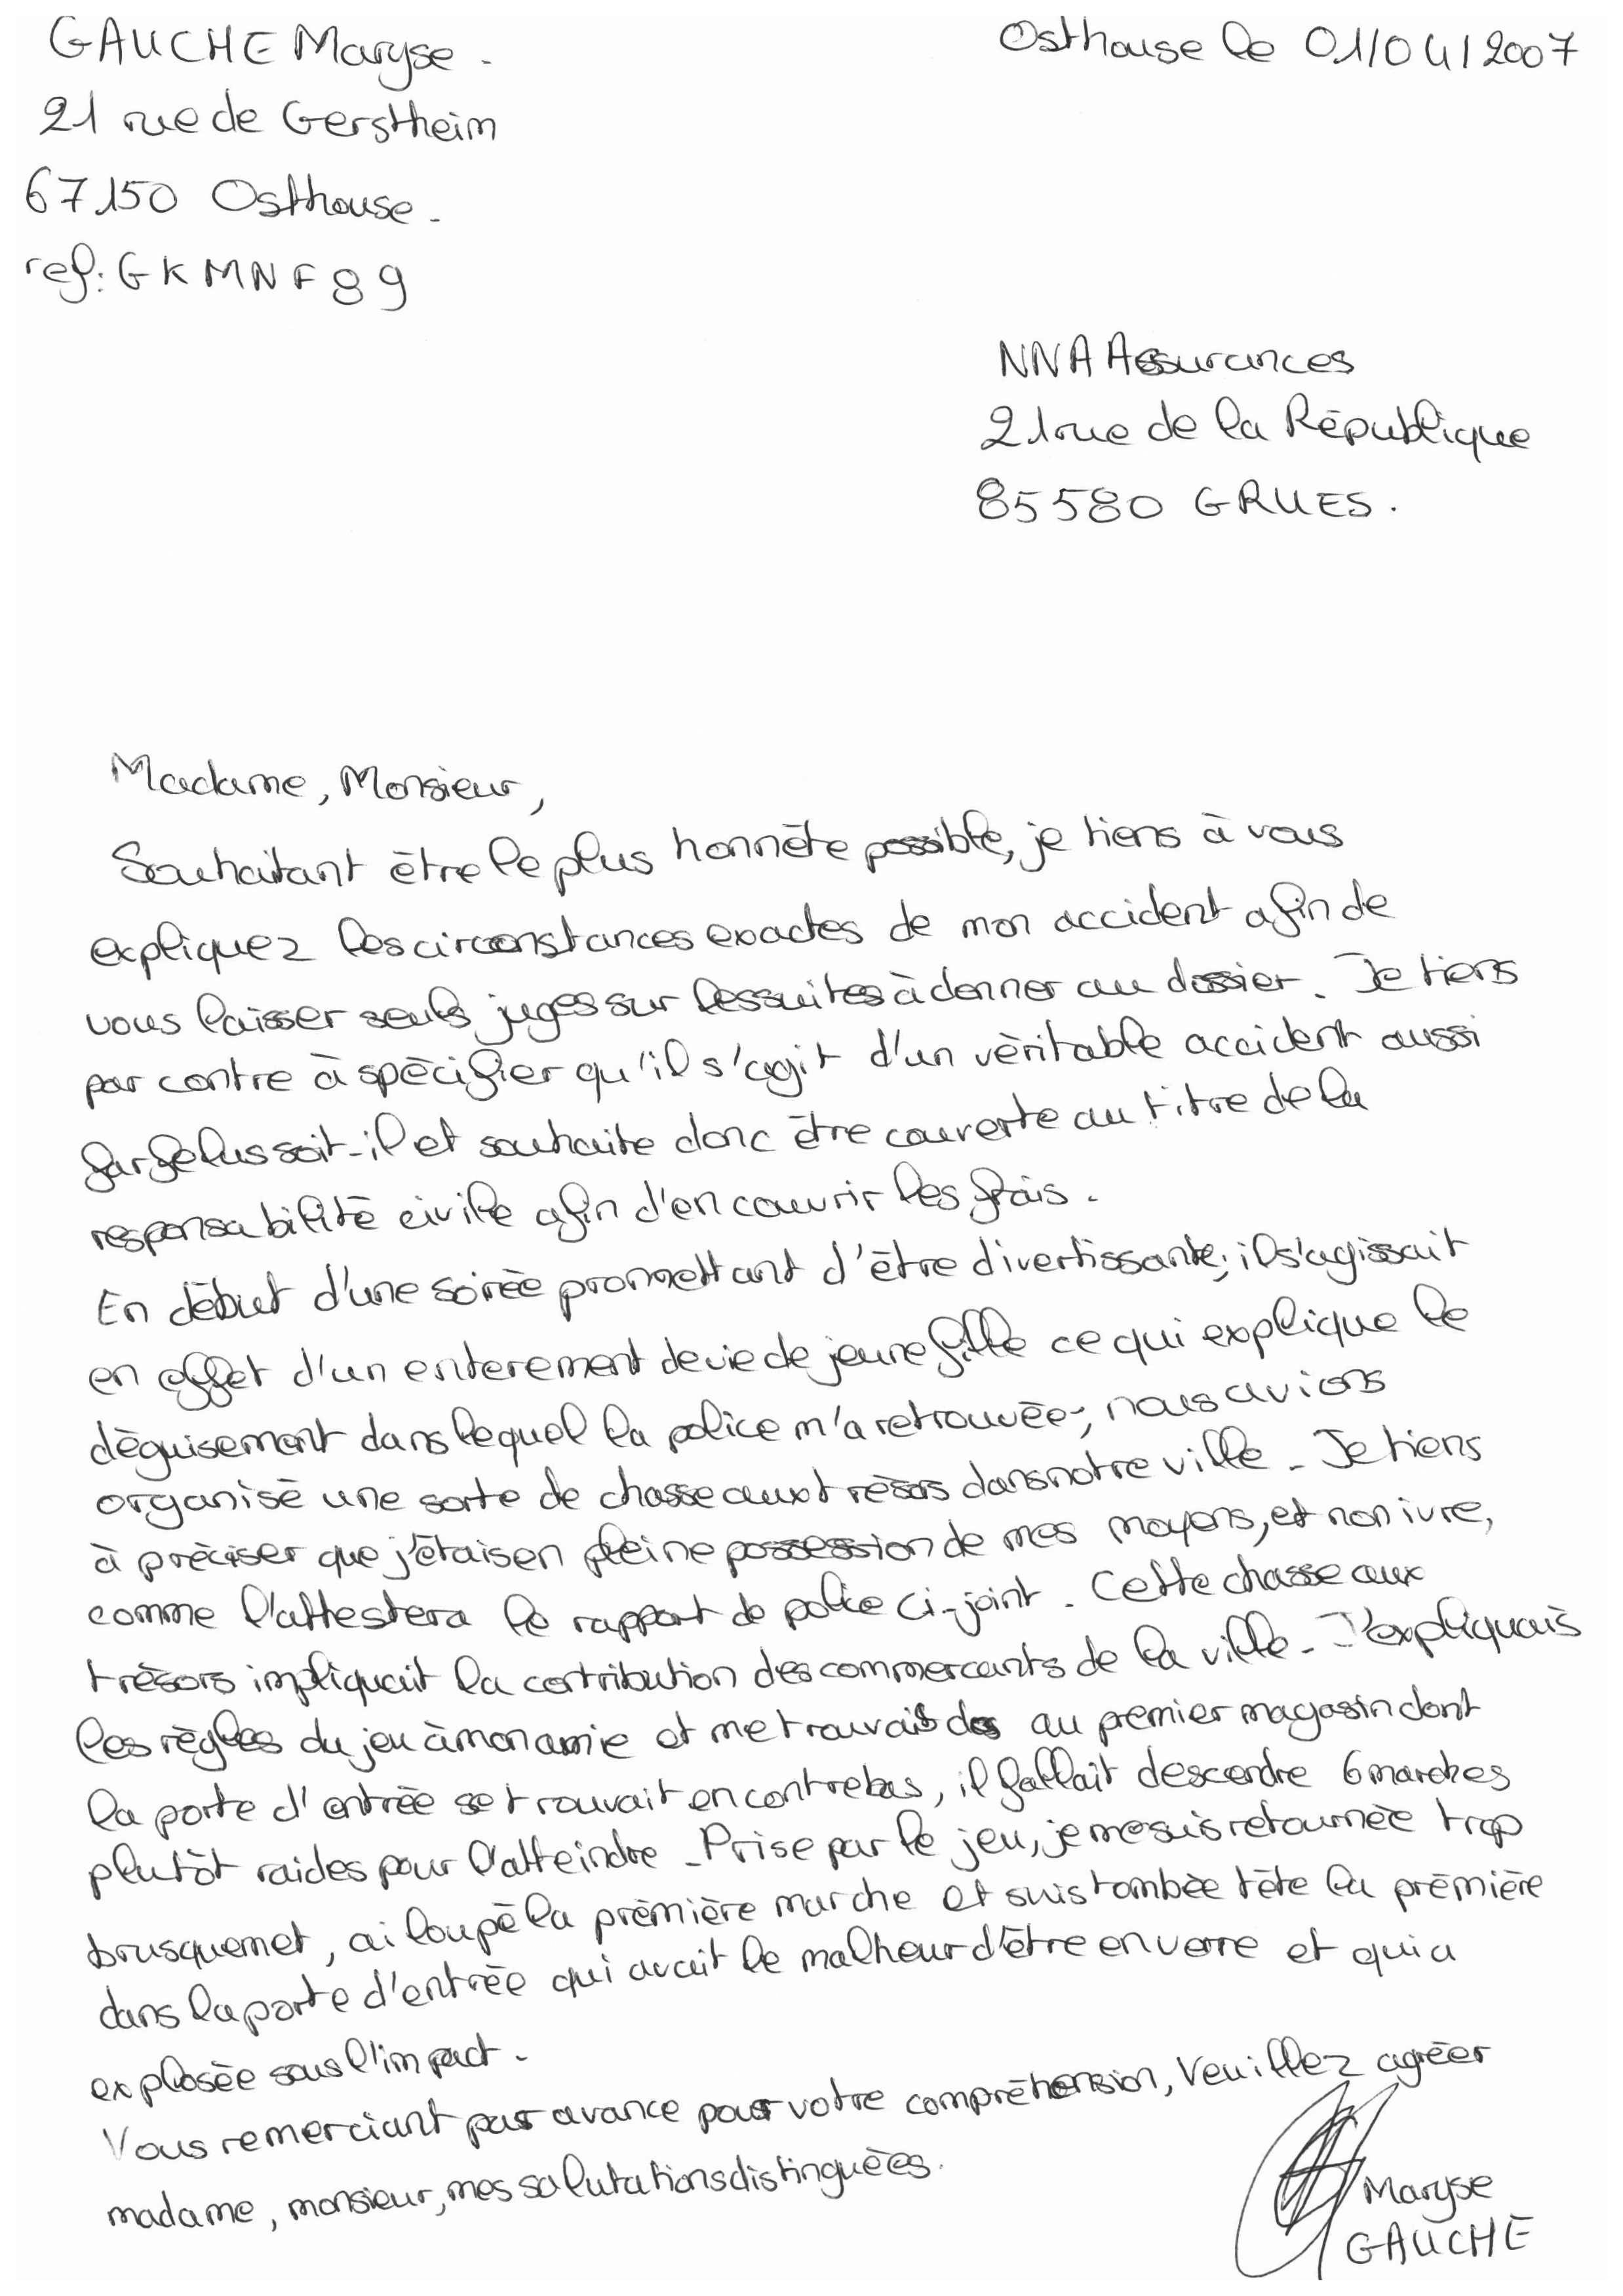 GAUCHE Maryse.
Osthouse le 01/04/2007
21 rue de Gerstheim
67150 Osthouse.
ref: GKMNF89
NNA Assurances
21 rue de la République
85580 GRUES.
Madame, Monsieur,
Souhaitant être le plus honnête possible, je tiens à vous
expliquez les circonstances exactes de mon accident afin de
vous laisser seuls juges sur les suites à donner au dossier. Je tiens
par contre à spécifier qu'il s'agit d'un véritable accident aussi
farfelus soit-il et souhaite donc être couverte au titre de la
responsabilité civile afin d'en couvrir les frais.
En début d'une soirée promettant d'être divertissante; il s'agissait
en effet d'un enterement de vie de jeune fille ce qui explique le
déguisement dans lequel la police m'a retrouvée-, nous avions
organisé une sorte de chasse aux trésors dans notre ville. Je tiens
à préciser que j'étais en pleine possession de mes moyens, et non ivre,
comme l'attestera le rapport de police ci-joint. Cette chasse aux
trésors impliquait la contribution des commercants de la ville. J'expliquais
les règles du jeu à mon amie et me trouvais dos au premier magasin dont
la porte d'entrée se trouvait en contrebas, il fallait descendre 6 marches
plutôt raides pour l'atteindre. Prise par le jeu, je me suis retournée trop
brusquemet, ai loupé la prémière marche et suis tombée tête la prémière
dans la porte d'entrée qui avait le malheur d'être en verre et qui a
explosée sous l'impact.
Vous remerciant par avance pour votre compréhension, Veuillez agréer
madame, monsieur, mes salutations distinguées.
Maryse
GAUCHE